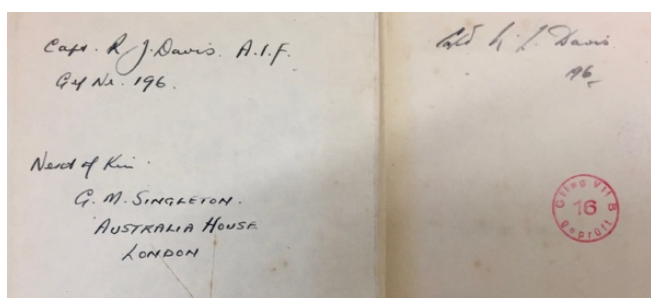 Capt. R. J. Davis. A.I.F.
Gef Nr. 196.
Next of Kin.
G. M. SINGLETON.
AUSTRALIA HOUSE
LONDON
Davis.
196
Oflag VII B
16
geprüft